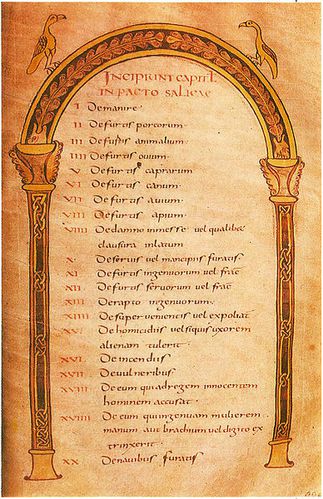 INCIPIUNT CAPITL
IN PACTO SALICAE
I De manire
II De furtis porcorum
III De furtis animalium
IIII De furtis ovium
V De furtis caprarum
VI De furtis canum
VII De furtis avium
VIII De furtis apium
VIIII De damno in messe vel qualibec
clausura inlatum
X De servis vel mancipiis furatis
XI De furtis ingenuorum vel frac
XII De furtis servorum vel frac
XIII De rapto ingenuorum
XIIII De superveniencis vel expoliac
XV De homicidiis vel si quis uxorem
alienam tulerit
XVI De incendiis
XVII De vulneribus
XVIII De eum qui ad regem innocentem
hominem accusat
XVIIII De eum qui ingenuam mulierem
manum aut brachium vel digito ex
trinxerit
XX De navibus furatis